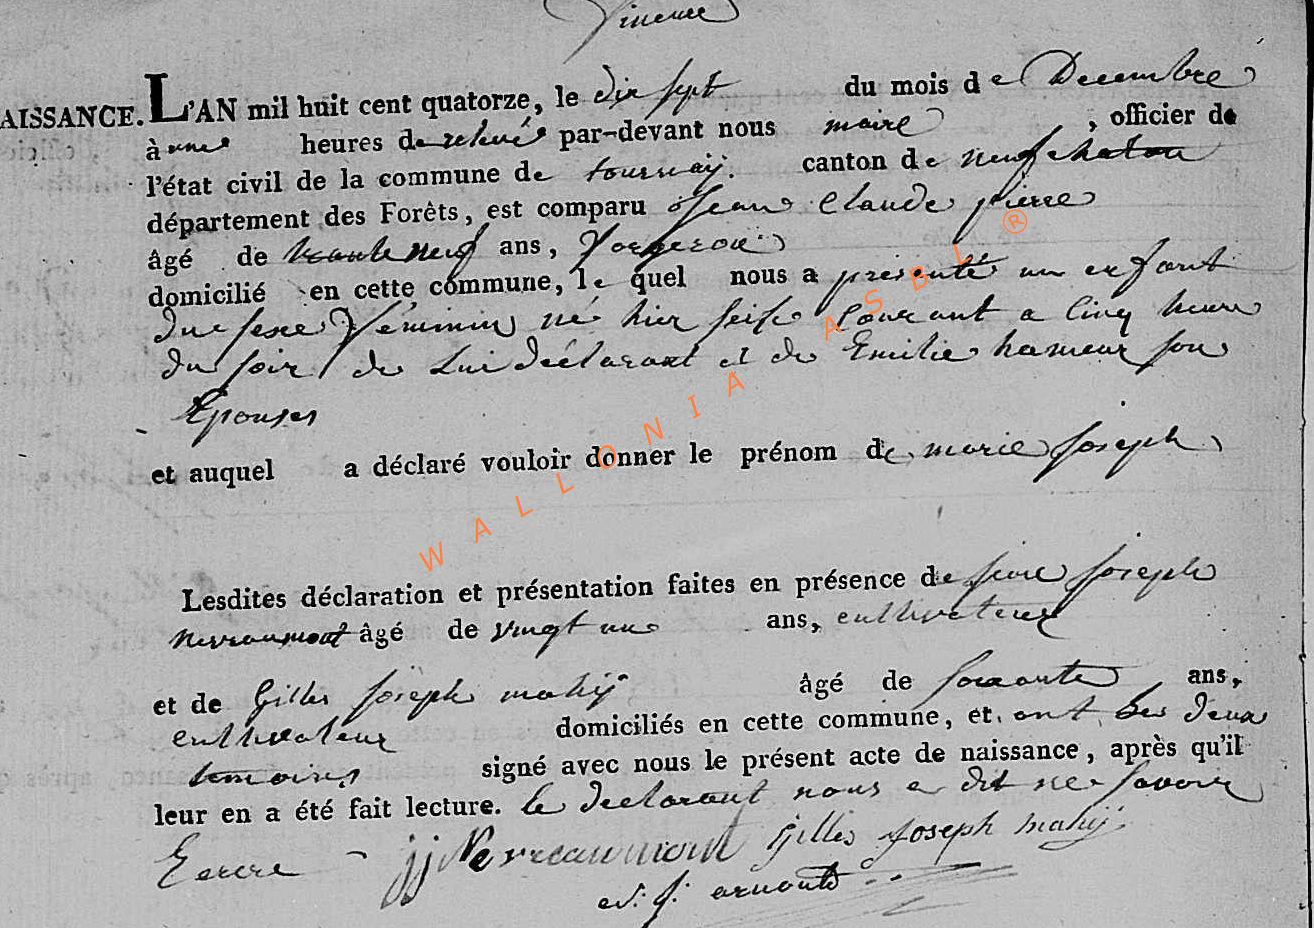 Vincence
AISSANCE. L'AN mil huit cent quatorze, le dix sept du mois de Decembre
à une heures de relevé par-devant nous maire, officier de
l'état civil de la commune de tournaÿ. canton de neufchatau
département des Forêts, est comparu Jean Claude pierre
âgé de trente neuf ans, forgeron
domicilié en cette commune, le quel nous a présenté un enfant
du sexe féminin né hier seise courant a cinq heure
du soir de Lui déclarant et de Emilie hameur son
Epouses
et auquel a déclaré vouloir donner le prénom de marie joseph
Lesdites déclaration et présentation faites en présence de jean joseph
nevraumont âgé de vingt un ans, cultivateur
et de Gilles joseph mahÿ âgé de soixante ans,
cultivateur domiciliés en cette commune, et ont les deux
temoins signé avec nous le présent acte de naissance, après qu'il
leur en a été fait lecture. le declarant nous a dit ne savoir
Ecrire jj Nevreaumont Gilles Joseph mahÿ
arnould
WALLONIA ASBL ®